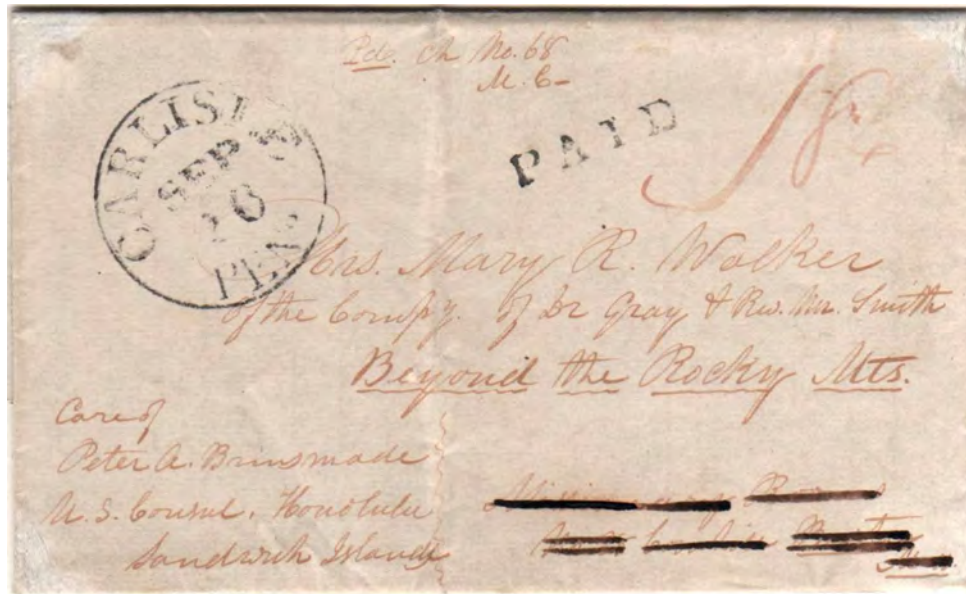 Pd. Ch No. 68
M. C-
CARLISLE
SEP
PEN
PAID
Mrs. Mary R. Walker
of the Compy. of Dr Gray & Rev. Mr. Smith
Beyond the Rocky Mts.
Care of
Peter A. Brinsmade
U.S. Consul, Honolulu
Sandwich Islands